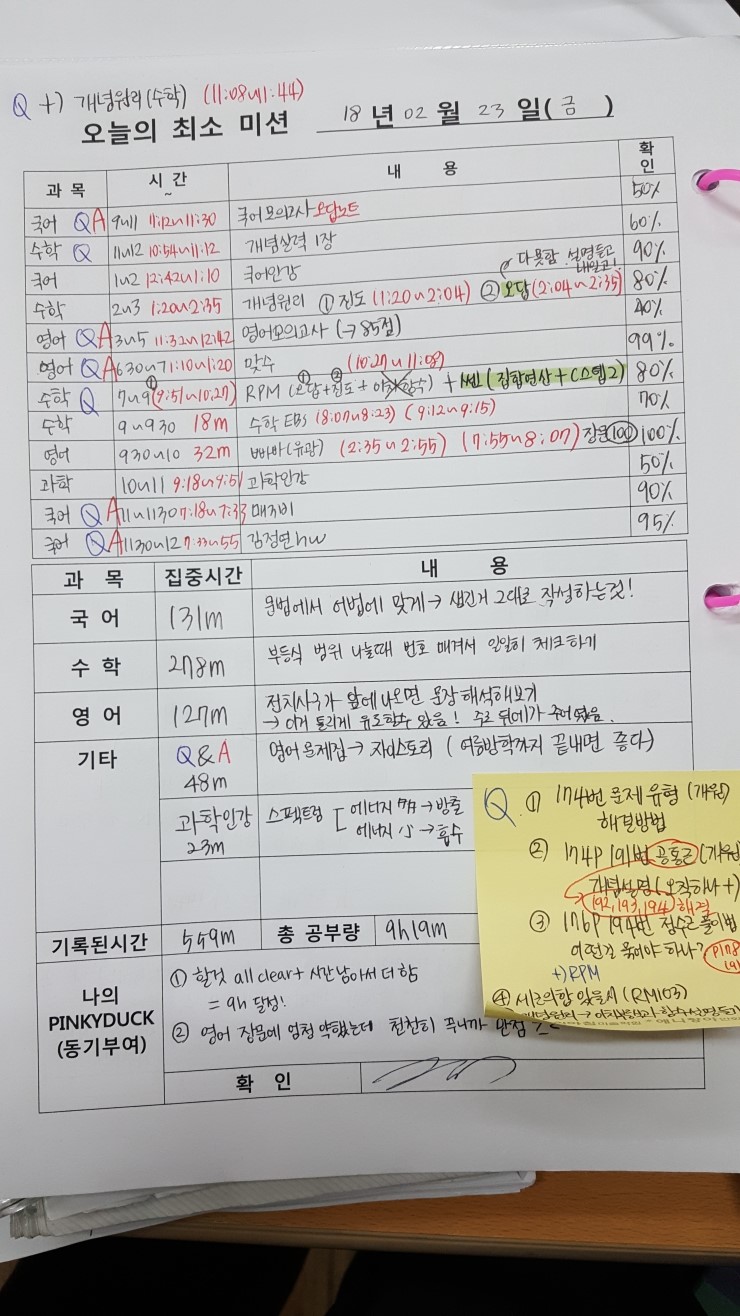 Q +) 개념원리(수학) (11:08~11:44)
오늘의 최소 미션 18 년 02 월 23 일( 금 )
과 목 시 간 ~ 내 용 확 인
50%
국어 QA 9~11 11:12~11:30 국어모의고사 오답노트
60%
수학 Q 11~12 10:54~11:12 개념실력 1장
90%
다못함 설명듣고
내일고!
국어 1~2 12:42~1:10 국어인강
80%
수학 2~3 1:20~2:35 개념원리 ① 진도 (1:20~2:04) ② 오답 (2:04~2:35)
40%
영어 QA 3~5 11:32~12:42 영어모의고사 (→ 85점)
99%
영어 QA 630~7 1:10~1:20 맞수 (10:27~11:08)
① ②
수학 Q 7~9 ① (9:51~10:27) RPM (오답+진도+ + 쎈 (집합연산 + C스텝2) 80%
70%
수학 9~930 18m 수학 EBS (8:07~8:23) (9:12~9:15)
영어 930~10 32m 빠바(유광) (2:35~2:55) (7:55~8:07) 장문 100 100%
50%
과학 10~11 9:18~9:51 과학인강
90%
국어 QA 11~1130 7:18~7:33 매3비
95%
국어 QA 1130~12 7:33~55 김정연hw
과 목 집중시간 내 용
국 어 131m 문법에서 어법에 맞게 → 생긴거 그대로 작성하는것!
수 학 278m 부등식 범위 나눌때 번호 매겨서 일일히 체크하기
영 어 127m 전치사구가 앞에나오면 문장 해석해보기
→ 이거 틀리게 유도할수 있음! 주로 뒤에가 주어였음.
기타 Q&A 48m 영어문제집 → 자이스토리 (여름방학까지 끝내면 좋다)
과학인강 23m 스펙트럼 [ 에너지 大 → 방출
에너지 小 → 흡수
기록된시간 559m 총 공부량 9h19m
나의
PINKYDUCK
(동기부여)
① 할것 all clear + 시간남아서 더 함
= 9h 달성!
② 영어 장문에 엄청 약했는데 천천히 푸니까 만점
확 인
Q ① 174번 문제 유형 (개원)
해결방법
② 174P 191번 공통근 (개원)
개념설명 (오직하나 +)
192, 193, 194) 해결
③ 176P 194번 정수근 풀이법
어떤걸 묶어야 하나?
+) RPM
④ 세근의합 있을시 (RM103)